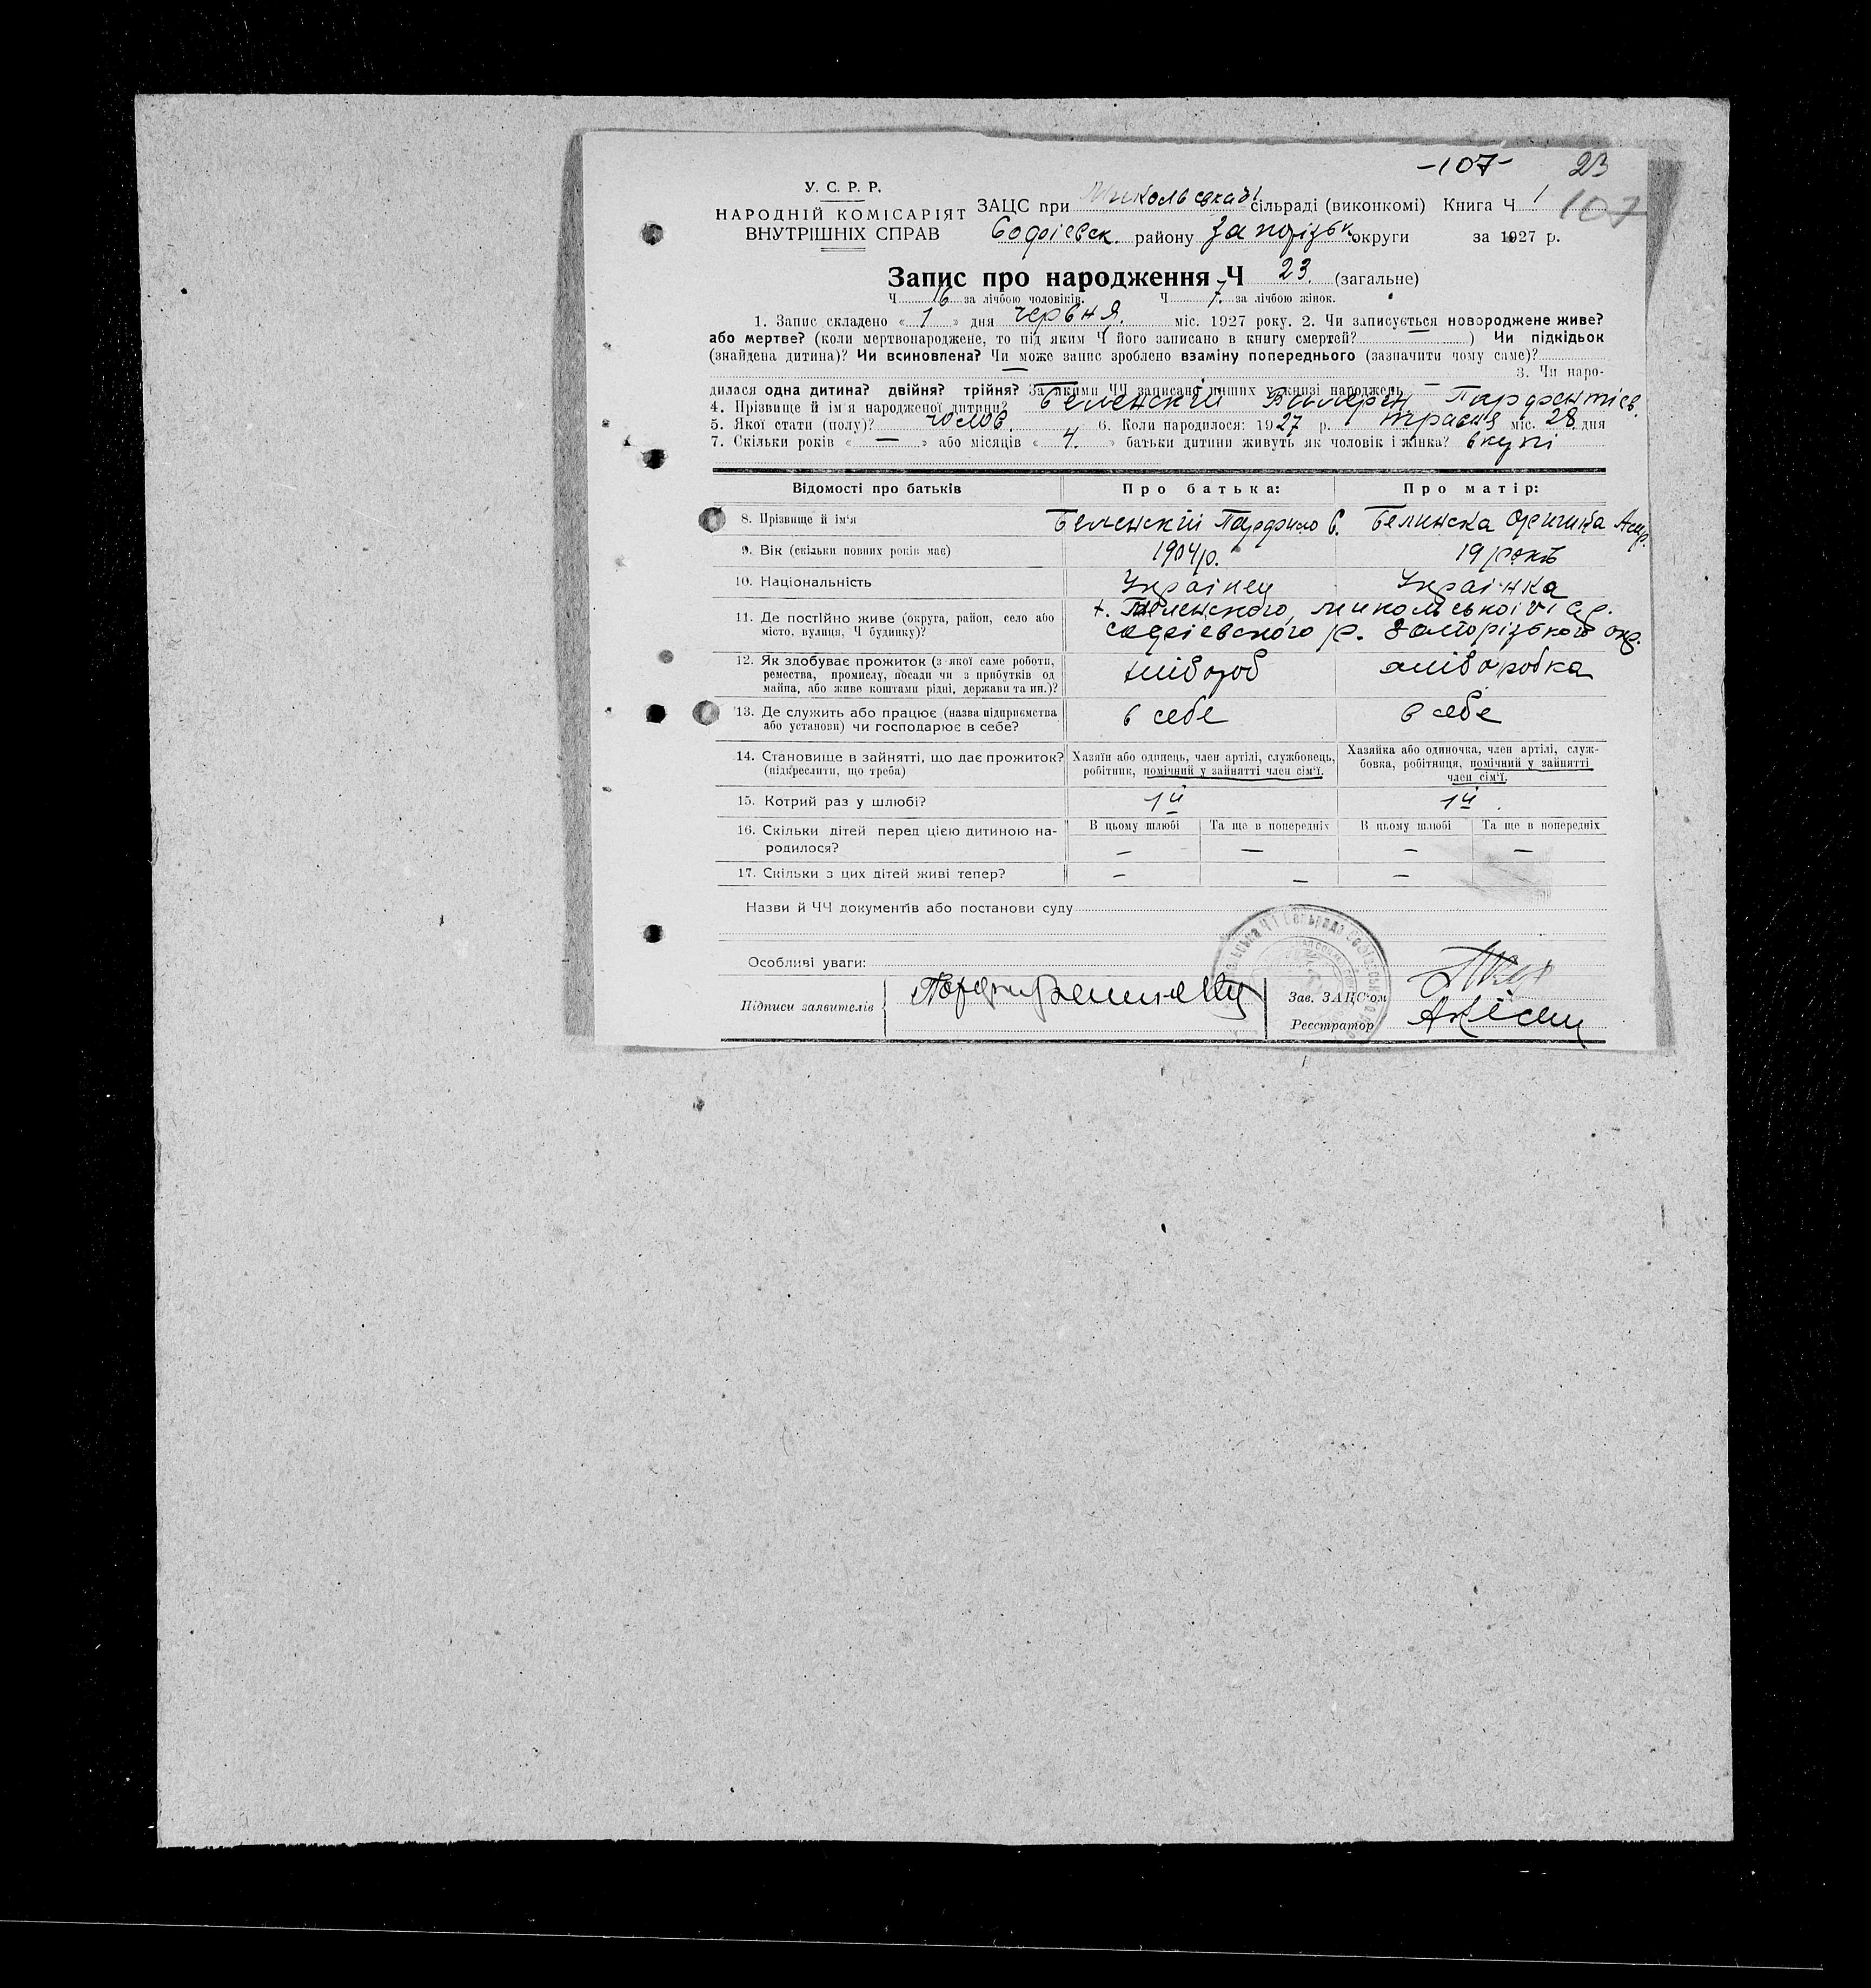 -107- 23
У. С. Р. Р.
НАРОДНІЙ КОМІСАРІЯТ
ВНУТРІШНІХ СПРАВ
ЗАЦС при сільраді (виконкомі) Книга Ч 1 107
Софіевск. району Запорізьк округи за 1927 р.
Запис про народження Ч 23. (загальне)
Ч 16 за лічбою чоловіків. Ч 7. за лічбою жінок.
1. Запис складено « 1 » дня червня. міс. 1927 року. 2. Чи записується новороджене живе?
або мертве? (коли мертвонароджене, то під яким Ч його записано в книгу смертей? ) Чи підкідьок
(знайдена дитина)? Чи всиновлена? Чи може запис зроблено взаміну попереднього (зазначити чому саме)?
— 3. Чи наро-
дилася одна дитина? двійня? трійня? За якими ЧЧ записано інших у книзі народжень —
4. Прізвище й ім'я народженої дитини? Беленский Валерин Парфентієв.
5. Якої стати (полу)? чолов. 6. Коли народилося: 1927 р. травня міс. 28 дня
7. Скільки років « — » або місяців « 4. » батьки дитини живуть як чоловік і жінка? вкупі
Відомості про батьків Про батька: Про матір:
8. Прізвище й ім'я Беленскій С. Белинска
9. Вік (скільки повних років має) 1904р. 19 рокив
10. Національність Украінец Украінка
11. Де постійно живе (округа, район, село або
місто, вулиця, Ч будинку)?
х. Беленского, микольської с.р.
софіевского р. Запорізького окр.
12. Як здобуває прожиток (з якої саме роботи,
ремества, промислу, посади чи з прибутків од
майна, або живе коштами рідні, держави та ин.)?
хлібороб хліборобка
13. Де служить або працює (назва підприємства
або установи) чи господарює в себе?
в себе в себе
14. Становище в зайнятті, що дає прожиток?
(підкреслити, що треба)
Хазяїн або одинець, член артілі, службовець,
робітник, помічний у зайнятті член сім'ї.
Хазяйка або одиночка, член артілі, служ-
бовка, робітниця, помічний у зайнятті
член сім'ї.
15. Котрий раз у шлюбі? 1й 1й.
16. Скільки дітей перед цією дитиною на-
родилося?
В цьому шлюбі Та ще в попередніх В цьому шлюбі Та ще в попередніх
— — — —
17. Скільки з цих дітей живі тепер? — — —
Назви й ЧЧ документів або постанови суду
Особливі уваги:
Підписи заявителів
Зав. ЗАЦС'ом
Реєстратор